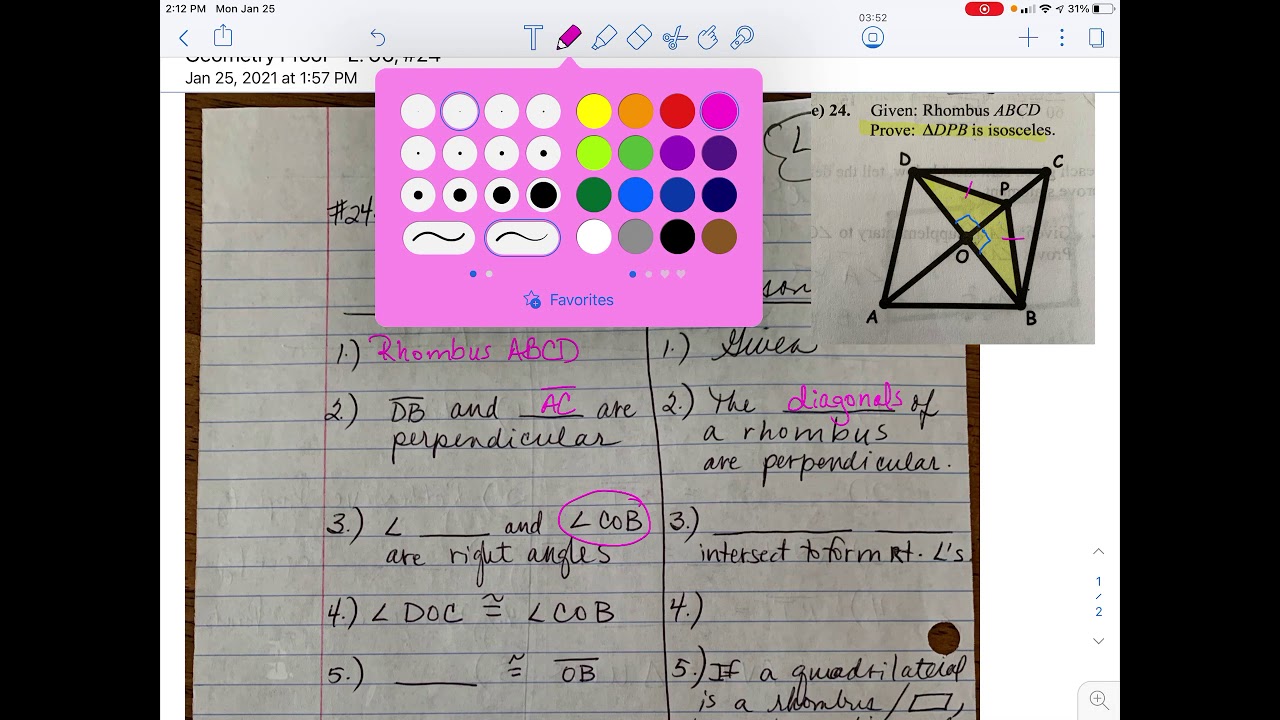 2:12 PM Mon Jan 25
31%
03:52
T
Jan 25, 2021 at 1:57 PM
e) 24. Given: Rhombus ABCD
Prove: ΔDPB is isosceles.
D
C
P
O
A
B
#24.
Favorites
1.) Rhombus ABCD
1.) Given
2.) DB and AC are
perpendicular
2.) The diagonals of
a rhombus
are perpendicular.
3.) ∠ ______ and ∠COB
are right angles
3.) ______ ______
intersect to form Rt. ∠'s.
4.) ∠DOC ≅ ∠COB
4.)
5.) ______ ≅ OB
5.) If a quadrilateral
is a rhombus / ▱,
1
/
2